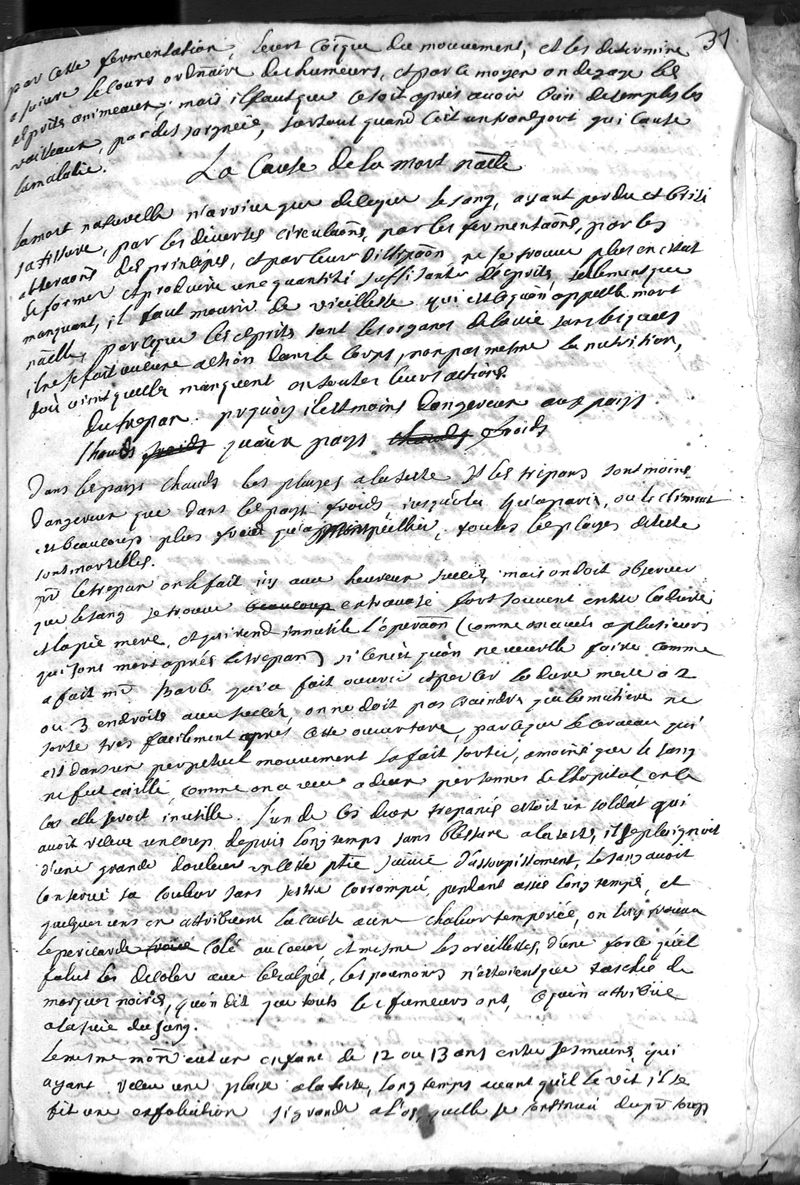 31
par cette fermentation, leurt coïque du mouvement, et les determine
a suivre le cours ordinaire des humeurs, et par ce moyen on degage les
esprits animeaux: mais il faut que ce soit après avoir bien desemples les
vaisseaux, par des saignées, surtout quand c'est un transport qui cause
la maladie.
La Cause de la mort nãelle
La mort naturelle n'arrive que de ceque le sang, ayant perdu et brisé
sa tissure, par les diverses circulaõns, par les fermentaõns, par les
alteraõns des principes, et par leur dissipaõn, ne se trouve plus en estat
de former et produire une quantité suffisante d'esprits, tellement que
manquant, il faut mourir de vieillesse qui est ce qu'on appelle mort
nãelle, parceque les esprits sont les organes de la vie sans lesqueles
il ne se fait aucune action dans le corps, non pas mesme la nutrition,
doù vient quelle manquent on toutes leurs actions.
Du trepan. prquoy il est moins dangereux aux pays
Chauds froids qu'aux pays chauds froids
Dans les pays Chauds les playes a la teste Et les trépans sont moins
dangereux que dans les pays froids, jusques la qu'a paris, ou le climat
est beaucoup plus froid qu'a Montpellier, toutes les playes de teste
sont mortelles.
pr le trepan on le fait icy avec heureux succés, mais on doit observer
que le sang se trouve beaucoup extravasé fort souvent entre la dure
et la pie mere, et qui rend innutile l'operaõn (comme on a veu a plusieurs
qui sont morts aprés le trepan) si ce n'est qu'on ne veuille faire comme
a fait mr barb. qui a fait ouvrir et percer la dure mere a 2
ou 3 endroits avec succés, on ne doit pas craindre que la matiere ne
sorte tres facilement aprés cette ouverture, parceque le cerveau qui
est dans un perpetuel mouvement la fait sortir, amoins que le sang
ne fut caillé, comme on a veu a deux personnes de l'hopital en ce
cas elle seroit inutille. L'un de ces deux trepanés estoit un soldat qui
avoit receu un coup depuis long temps sans blessure a la teste, il se plaignoit
d'une grande douleur en cette ptie suivie d'assoupissement, le sang avoit
conservé sa couleur sans s'estre corrompu, pendant assés long temps, et
quelques uns en attribuent la cause a une chaleur temperée, on luy trouva
le pericarde colé au coeur, et mesme les oreillettes, d'une force qu'il
falut les decoler avec le scalpel, les poumons n'estoient que taschés de
marques noires, qu'on dit que touts les fumeurs ont, ce qu'on attribue
a la suie du sang.
Le mesme monr eut un enfant de 12 ou 13 ans entre ses mains, qui
ayant receu une plaie a la teste, long temps avant qu'il le vit il se
fit une exfoliation si grande a l'os, quelle se